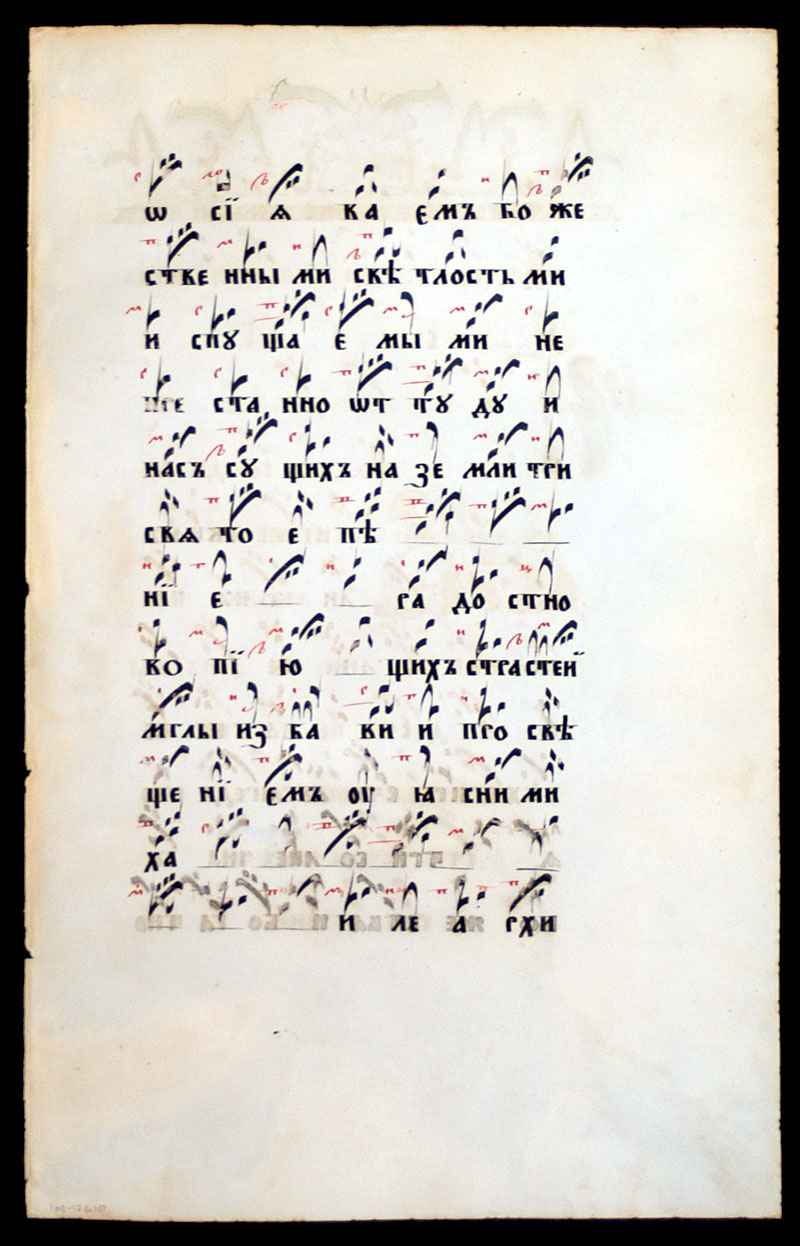 ѡ сї ѧ ва емъ бо же
стве нны ми свѣ тлость ми
и спу ща е мы ми не
пре ста нно ѿт ту ду и
насъ су щихъ на зе мли три
свѧ то е пѣ
нї е ра до стно
во пї ю щихъ стра стей
мглы из ба ви и про свѣ
ще нї емъ оу ꙗ сни ми
ха
и ле а рхи